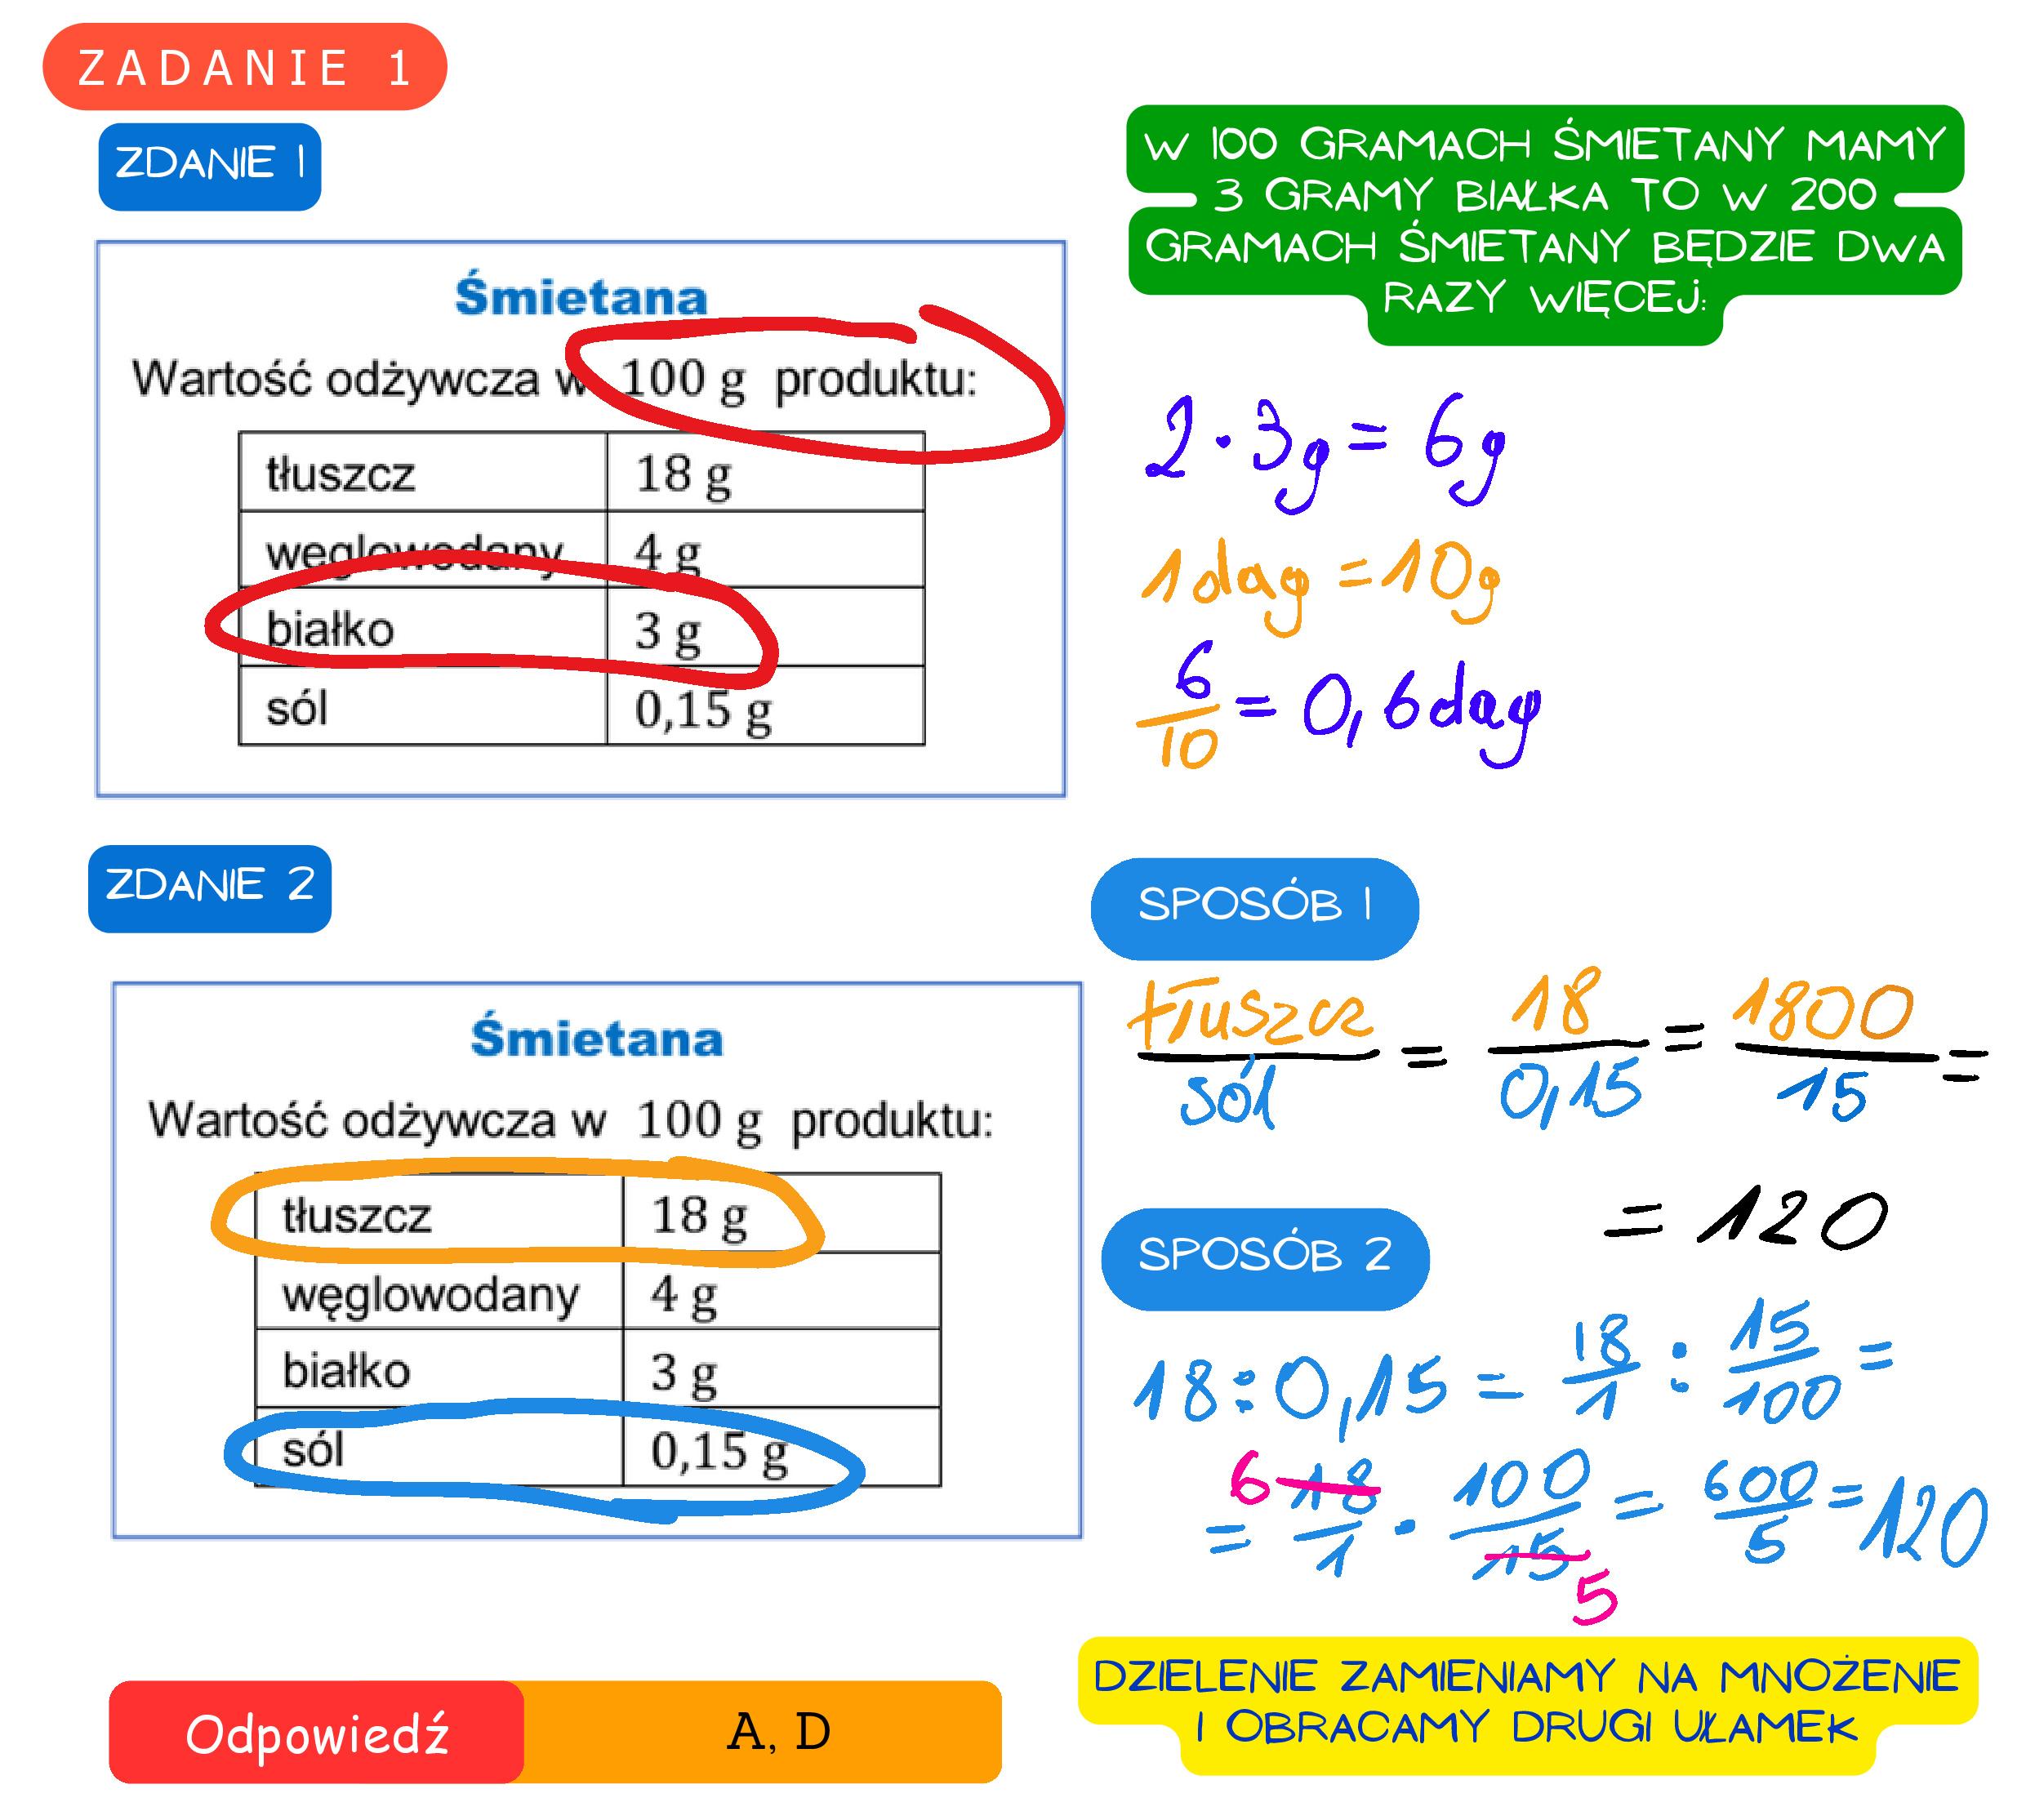 ZADANIE 1
ZDANIE 1
Śmietana
Wartość odżywcza w 100 g produktu:
tłuszcz 18 g
węglowodany 4 g
białko 3 g
sól 0,15 g
W 100 GRAMACH ŚMIETANY MAMY
3 GRAMY BIAŁKA TO W 200
GRAMACH ŚMIETANY BĘDZIE DWA
RAZY WIĘCEJ:
2 · 3g = 6g
1dag = 10g
6/10 = 0,6dag
ZDANIE 2
Śmietana
Wartość odżywcza w 100 g produktu:
tłuszcz 18 g
węglowodany 4 g
białko 3 g
sól 0,15 g
SPOSÓB 1
tłuszcz/sól = 18/0,15 = 1800/15 =
= 120
SPOSÓB 2
18 : 0,15 = 18/1 : 15/100 =
= 6 18/1 · 100/15 5 = 600/5 = 120
DZIELENIE ZAMIENIAMY NA MNOŻENIE
I OBRACAMY DRUGI UŁAMEK
Odpowiedź A, D